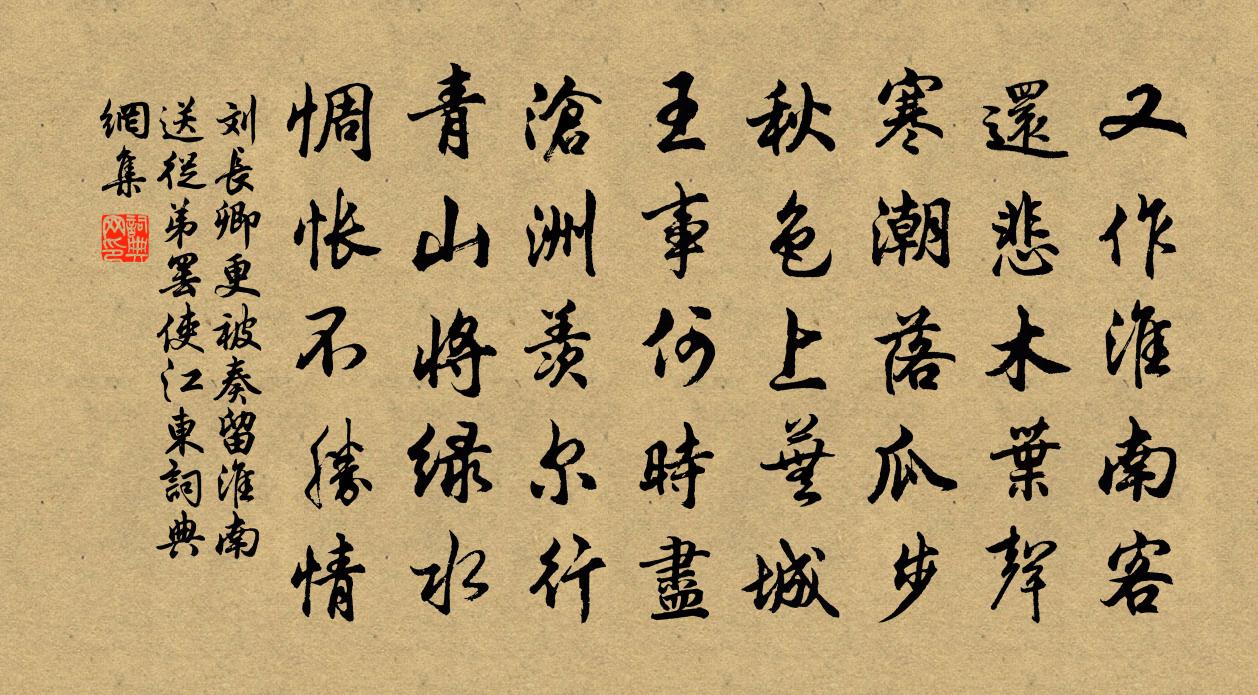 又作淮南客
還悲木葉聲
寒潮落瓜步
秋色上蕪城
王事何時盡
滄洲羨尔行
青山將綠水
惆悵不勝情
刘長卿更被奏留淮南
送從弟罷使江東詞典
網集
詞典
网印